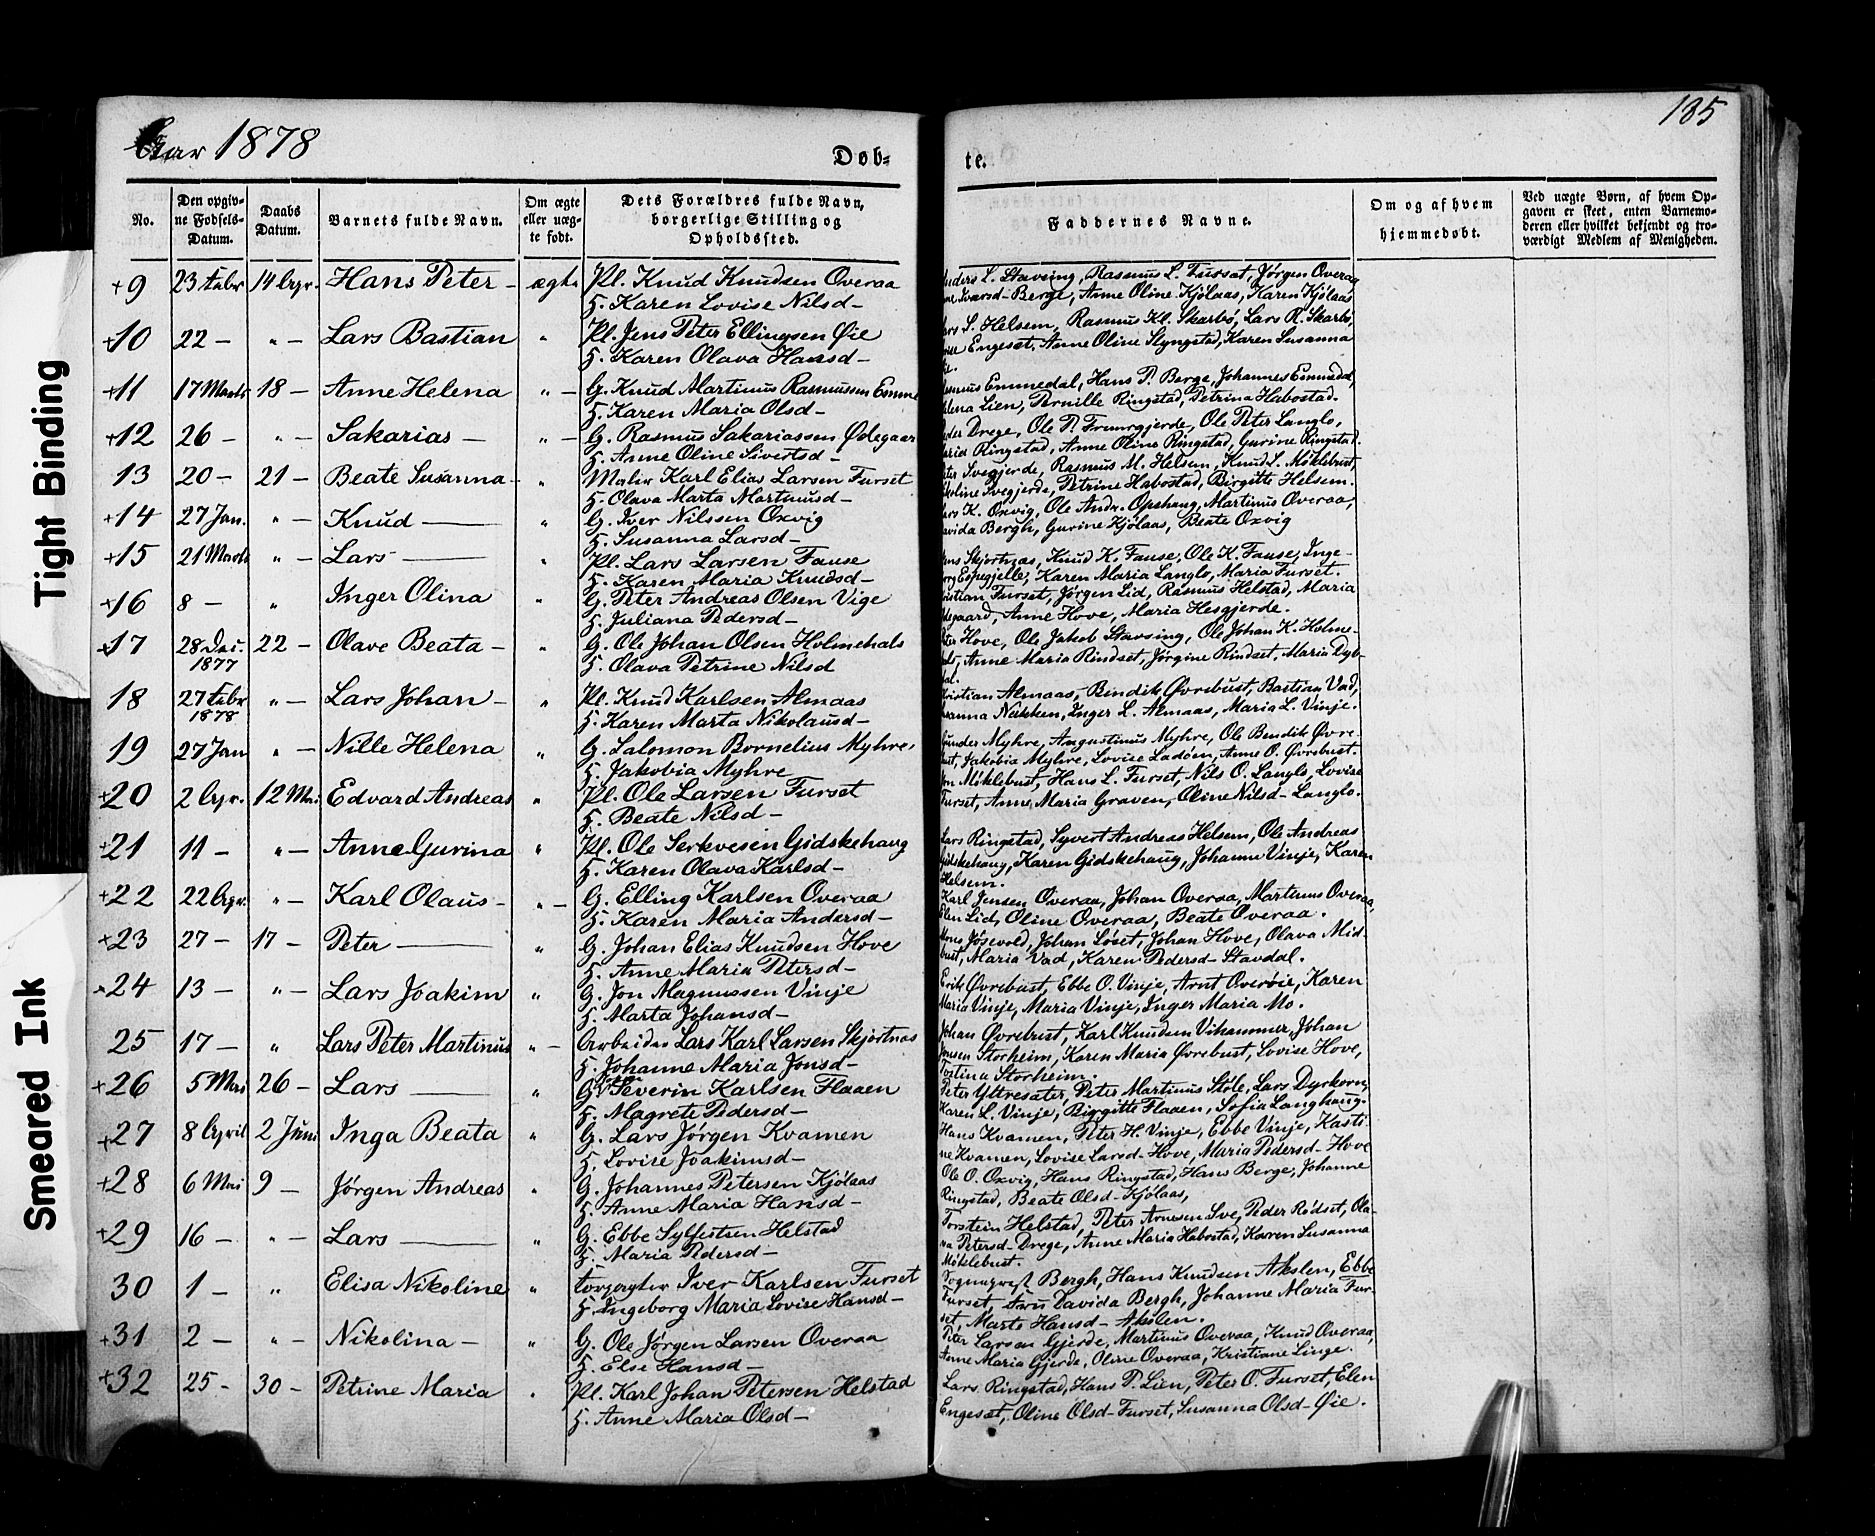 Tight Binding
Smeared Ink
Aar 1878
185
Døb-
te.
No.
Den opgivne Fødsels-Datum.
Daabs Datum.
Barnets fulde Navn.
Om ægte eller uægte født.
Dets Forældres fulde Navn, borgerlige Stilling og Opholdssted.
Faddernes Navne.
Om og af hvem hjemmedøbt.
Ved uægte Børn, af hvem Opgaven er skeet, enten Barnemoderen eller hvilket bekjendt og troværdigt Medlem af Menigheden.
+9 23 Febr 14 Apr. Hans Peter - ægte Pl. Knud Knudsen Overaa
H. Karen Lovise Nilsd-
L. Stavsing, Rasmus L. Furset, Jørgen Overaa
Ivarsd- Berge, Anne Oline Kjølaas, Karen Kjølaas
+10 22 - " - Lars Bastian " Pl. Jens Peter Ellingsen Øie
H. Karen Olava Hansd-
S. Helsem, Rasmus Kl. Skarbø, Lars R. Skarbø,
Engeset, Anne Oline Slyngstad, Karen Susanna
+11 17 Marts 18 - Anne Helena " - G. Knud Martinus Rasmussen
H. Karen Maria Olsd-
Emmedal, Hans P. Berge, Johannes Emmedal,
Lien, Pernille Ringstad, Petrina Habostad.
+12 26 - " - Sakarias - " - G. Rasmus Sakariassen Ødegaar
H. Anne Oline Sivertsd-
Drege, Ole P. Frumrgjerde, Ole Peter Langlo,
Ringstad, Anne Oline Ringstad, Gurine Ringstad.
13 20 - 21 - Beate Susanna - " Maler Karl Elias Larsen Furset
H. Olava Marta Martinusd-
Svegjerde, Rasmus M. Helsem, Knud L. Møklebust,
Svegjerde, Petrine Habostad, Birgitte Helsem.
+14 27 Jan. " - Knud - " G. Iver Nilssen Oxvig
H. Susanna Larsd-
K. Oxvig, Ole Andr. Opshaug, Martinus Overaa,
Bergh, Gurine Kjølaas, Beate Oxvig
+15 21 Marts " - Lars - " Pl. Lars Larsen Fause
H. Karen Maria Knudsd-
Skjortnas, Knud K. Fause, Ole K. Fause, Inge-
Espegjelle, Karen Maria Langlo, Maria Furset.
+16 8 - " Inger Olina " G. Peter Andreas Olsen Vige
H. Juliana Pedersd-
Furset, Jørgen Lid, Rasmus Helstad, Maria
Anne Hove, Maria Hesgjerde.
+17 28 Dec. 1877 22 - Olave Beata - " G. Ole Johan Olsen Holmehals
H. Olava Petrine Nilsd
Hove, Ole Jakob Stavsing, Ole Johan K. Holme-
Anne Maria Rindset, Jørgine Rindset, Maria Dyb-
dal.
18 27 Febr 1878 " - Lars Johan - " Pl. Knud Karlsen Almaas
H. Karen Marta Nikolausd-
Almaas, Bendik Øvrebust, Bastian Vad,
Nekken, Inger L. Almaas, Maria L. Vinje.
19 27 Jan " - Nille Helena " G. Salomon Bornelius Myhre,
H. Jakobia Myhre
Myhre, Augustinus Myhre, Ole Bendik Øvre-
bust, Jakobia Myhre, Lovise Ladøen, Anne O. Øvrebust.
+20 2 Apr. 12 Mai Edvard Andreas " Pl. Ole Larsen Furset
H. Beate Nilsd-
Møklebust, Hans L. Furset, Nils O. Langlo, Lovise
Furset, Anne Maria Graven, Oline Nilsd- Langlo.
+21 11 - " - Anne Gurina " Pl. Ole Serkvesen Gidskehaug
H. Karen Olava Karlsd-
Lars Ringstad, Syvert Andreas Helsem, Ole Andreas
Gidskehaug, Karen Gidskehaug, Johanne Vinje, Karen
Helsem.
+22 22 Apr. " - Karl Olaus - " - G. Elling Karlsen Overaa
H. Karen Maria Andersd-
Karl Jensen Overaa, Johan Overaa, Martinus Overaa,
Elen Lid, Oline Overaa, Beate Overaa.
+23 27 - 17 - Peter - " G. Johan Elias Knudsen Hove
H. Anne Maria Petersd-
Mons Jøsevold, Johan Løset, Johan Hove, Olava Mid-
bust, Maria Vad, Karen Pedersd- Stavdal.
+24 13 - " - Lars Joakim " G. Jon Magnussen Vinje
H. Marta Johansd-
Erik Øvrebust, Ebbe O. Vinje, Arnt Overøie, Karen
Maria Vinje, Maria Vinje, Inger Maria Mo.
25 17 - " Lars Peter Martinus " - Arbeider Lars Karl Larsen Skjortnas
H. Johanne Maria Jonsd-
Johan Øvrebust, Karl Knudsen Vihammer, Johan
Jensen Storheim, Karen Maria Øvrebust, Lovise Hove,
Tostina Storheim.
+26 5 Mai 26 - Lars - " G. Severin Karlsen Flaaen
H. Magrete Pedersd-
Peter Yttresæter, Peter Martinus Støle, Lars Dyrkorn,
Karen L. Vinje, Birgitte Flaaen, Sofia Langhaug.
+27 8 April 2 Juni Inga Beata " G. Lars Jørgen Kvamen
H. Lovise Joakimsd-
Hans Kvamen, Peter H. Vinje, Ebbe Vinje, Kasti-
ne Kvamen, Lovise Larsd- Hove, Maria Pedersd- Hove
+28 6 Mai 9 - Jørgen Andreas " G. Johannes Petersen Kjølaas
H. Anne Maria Hansd-
Ole O. Oxvig, Hans Ringstad, Hans Berge, Johanne
Ringstad, Beate Olsd- Kjølaas,
+29 16 - " - Lars - " G. Ebbe Sylfestsen Helstad
H. Maria Pedersd-
Torstein Helstad, Peter Arnesen Sve, Peder Rødset, Ola-
va Petersd- Drege, Anne Maria Habostad, Karen Susanna
Møklebust.
30 1 - " Elisa Nikoline " Forpagter Iver Karlsen Furset
H. Ingeborg Maria Lovise Hansd-
Sognepræst Bergh, Hans Knudsen Akslen, Ebbe
Furset, Fru Davida Bergh, Johanne Maria Fur-
set, Marte Hansd- Akslen.
+31 2 - " - Nikolina - " G. Ole Jørgen Larsen Overaa
H. Else Hansd-
Peter Larsen Gjerde, Martinus Overaa, Knud Overaa,
Anne Maria Gjerde, Oline Overaa, Kristiane Linge.
+32 25 - 30 - Petrine Maria " Pl. Karl Johan Petersen Helstad
H. Anne Maria Olsd-
Lars Ringstad, Hans P. Lien, Peter O. Furset, Elen
Engeset, Oline Olsd- Furset, Susanna Olsd- Øie.